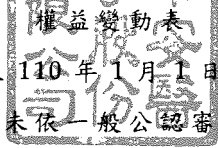 權益變動表
110年1月1日
未依一般公認審